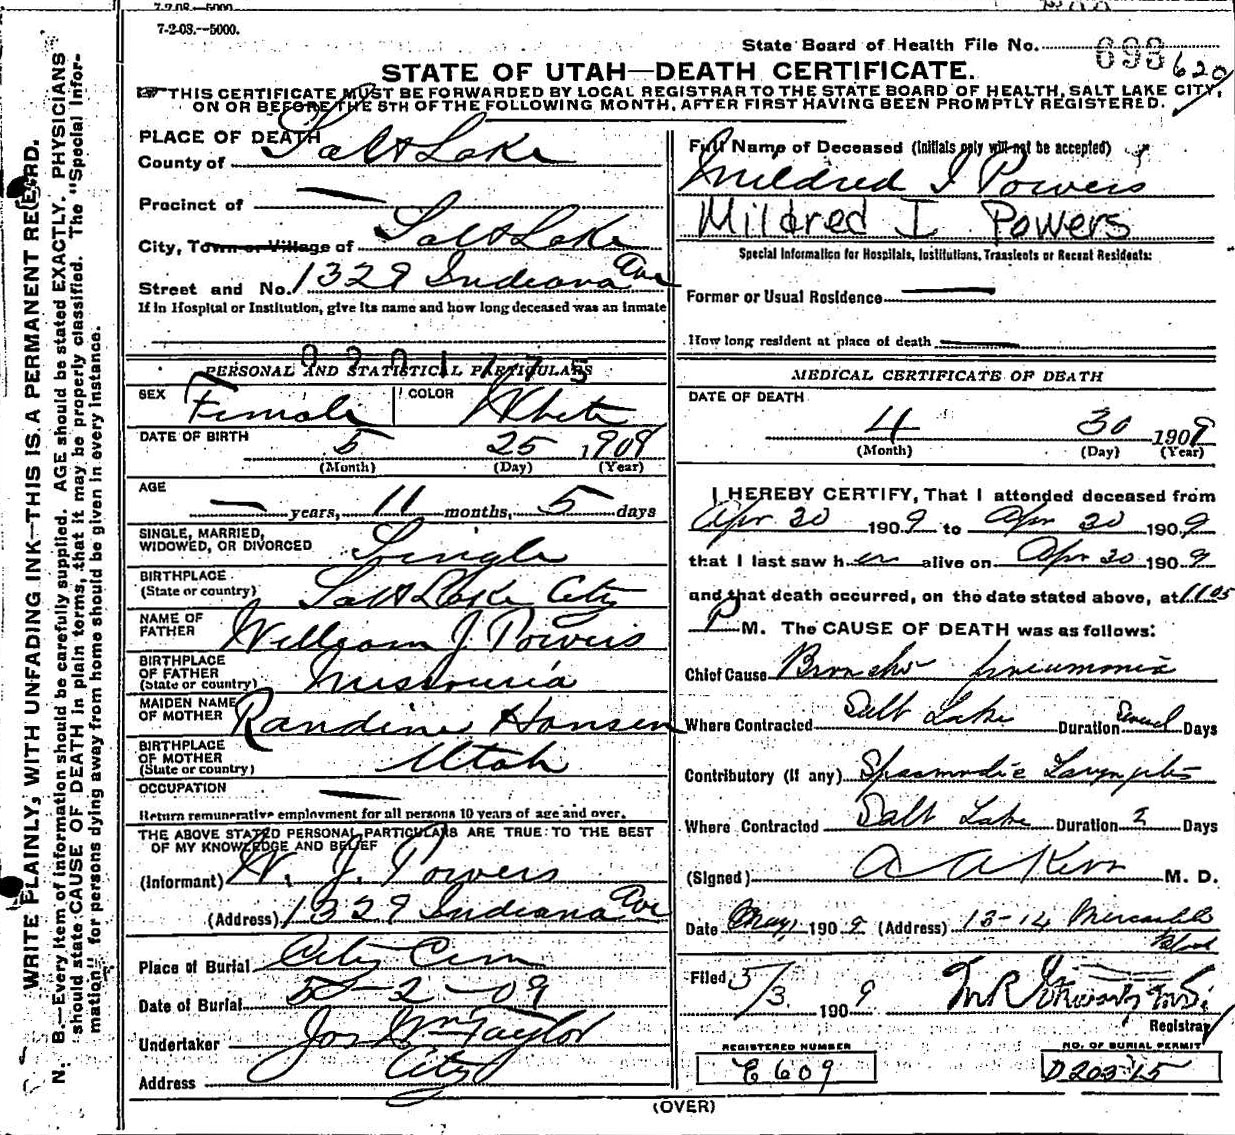 7-2-08.--5000.
7-2-08.--5000.
State Board of Health File No. 698 620
STATE OF UTAH—DEATH CERTIFICATE.
THIS CERTIFICATE MUST BE FORWARDED BY LOCAL REGISTRAR TO THE STATE BOARD OF HEALTH, SALT LAKE CITY,
ON OR BEFORE THE 5TH OF THE FOLLOWING MONTH, AFTER FIRST HAVING BEEN PROMPTLY REGISTERED.
WRITE PLAINLY, WITH UNFADING INK—THIS IS A PERMANENT RECORD.
N. B.—Every item of information should be carefully supplied. AGE should be stated EXACTLY. PHYSICIANS
should state CAUSE OF DEATH in plain terms, that it may be properly classified. The "Special Infor-
mation" for persons dying away from home should be given in every instance.
PLACE OF DEATH
County of Salt Lake
Precinct of —
City, Town or Village of Salt Lake
Street and No. 1329 Indiana Ave
If in Hospital or Institution, give its name and how long deceased was an inmate
PERSONAL AND STATISTICAL PARTICULARS
SEX Female COLOR White
DATE OF BIRTH 5 25 1908
(Month) (Day) (Year)
AGE — years, 11 months, 5 days
SINGLE, MARRIED,
WIDOWED, OR DIVORCED Single
BIRTHPLACE
(State or country) Salt Lake City
NAME OF
FATHER William J. Powers
BIRTHPLACE
OF FATHER
(State or country) Missouria
MAIDEN NAME
OF MOTHER Randine Hansen
BIRTHPLACE
OF MOTHER
(State or country) Utah
OCCUPATION —
Return remunerative employment for all persons 10 years of age and over.
THE ABOVE STATED PERSONAL PARTICULARS ARE TRUE TO THE BEST
OF MY KNOWLEDGE AND BELIEF
(Informant) W. J. Powers
(Address) 1329 Indiana Ave
Place of Burial City Cem
Date of Burial 5-2-09
Undertaker Jos Wm Taylor
Address City
Full Name of Deceased (Initials only will not be accepted)
Mildred I Powers
Mildred I Powers
Special Information for Hospitals, Institutions, Transients or Recent Residents:
Former or Usual Residence —
How long resident at place of death —
MEDICAL CERTIFICATE OF DEATH
DATE OF DEATH
4 30 1909
(Month) (Day) (Year)
I HEREBY CERTIFY, That I attended deceased from
Apr 30 1909 to Apr 30 1909
that I last saw her alive on Apr 30 1909
and that death occurred, on the date stated above, at 11 05
P M. The CAUSE OF DEATH was as follows:
Chief Cause Broncho pneumonia
Where Contracted Salt Lake Duration Several Days
Contributory (if any) Spasmodic Laryngitis
Where Contracted Salt Lake Duration 2 Days
(Signed) A A Kerr M. D.
Date May 1 1909 (Address) 13-14 Mercantile
Block
Filed 5/3 1909
Registrar
REGISTERED NUMBER
E 609
NO. OF BURIAL PERMIT
D 20315
(OVER)